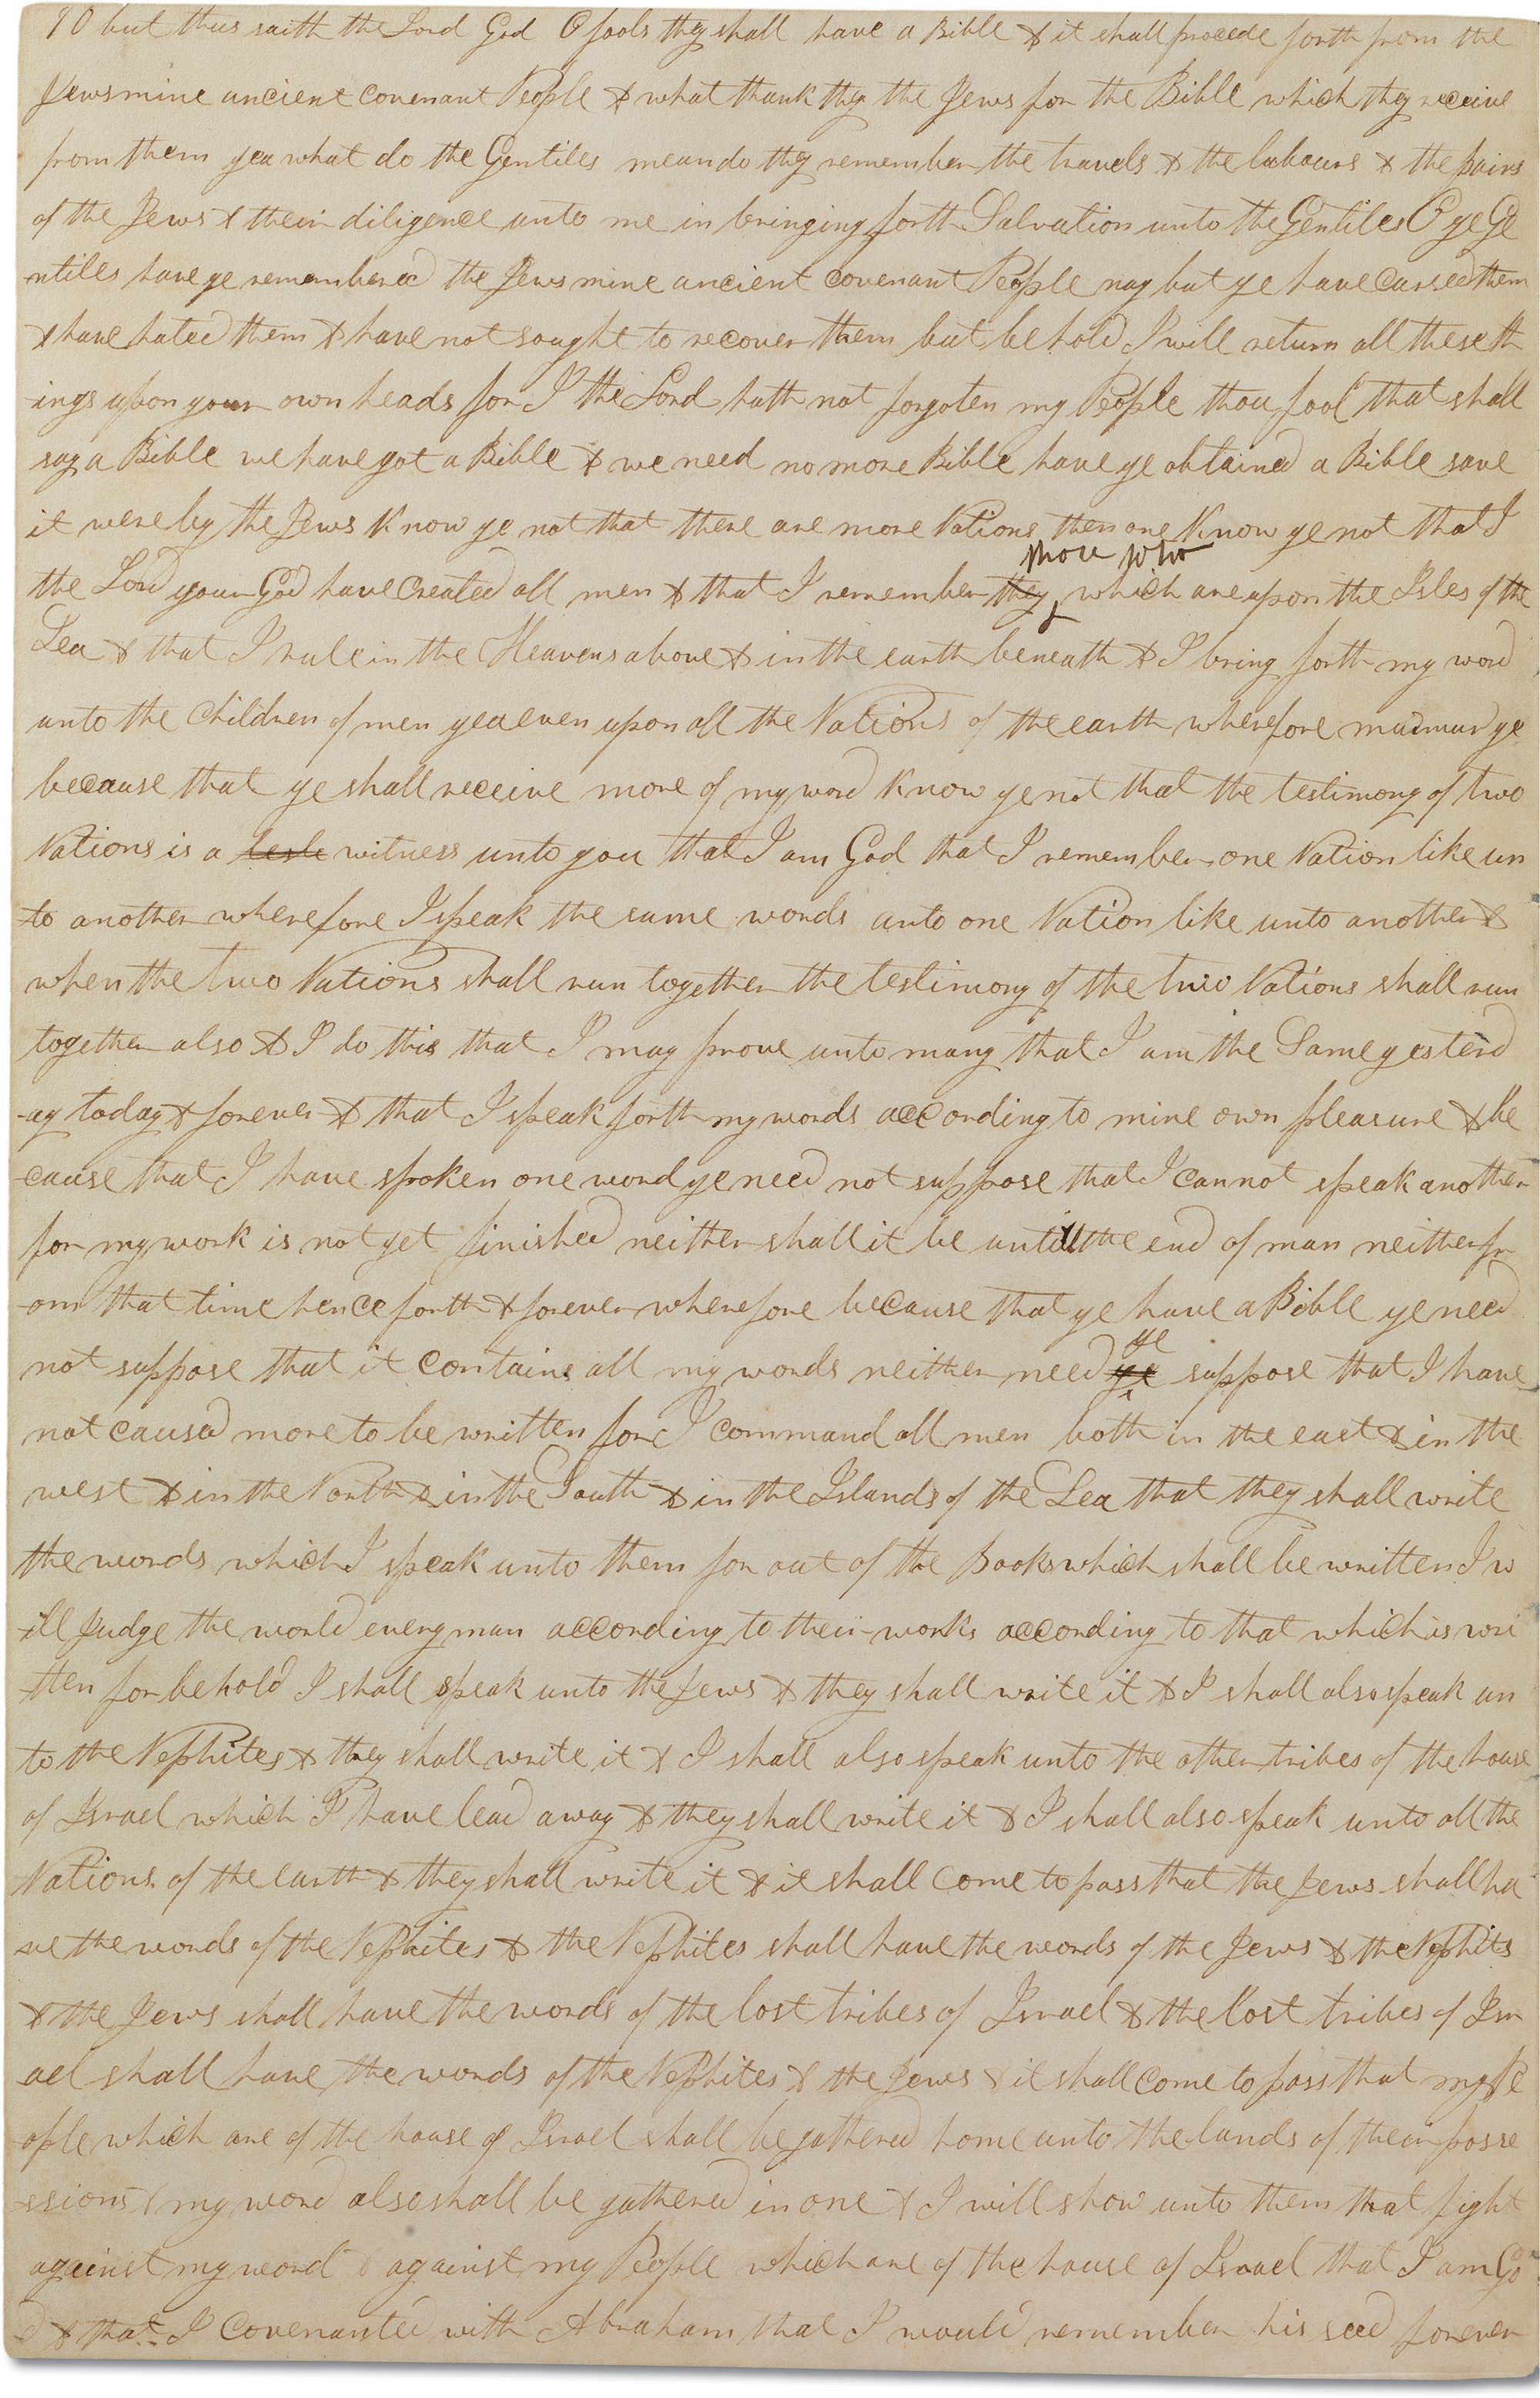 90 but thus saith the Lord God O fools they shall have a Bible & it shall procede forth from the
Jews mine ancient covenant People & what thank they the Jews for the Bible which they receive
from them yea what do the Gentiles mean do they remember the travels & the labours & the pains
of the Jews & their diligence unto me in bringing forth Salvation unto the Gentiles O ye Ge
-ntiles have ye remembered the Jews mine ancient covenant People nay but ye have cursed them
& have hated them & have not sought to recover them but behold I will return all these th
-ings upon your own heads for I the Lord hath not forgoten my People thou fool that shall
say a Bible we have got a Bible & we need no more Bible have ye obtained a Bible save
it were by the Jews Know ye not that there are more Nations then one Know ye not that I
those who
the Lord your God have created all men & that I remember they which are upon the Isles of the
Sea & that I rule in the Heavens above & in the earth beneath & I bring forth my word
unto the children of men yea even upon all the Nations of the earth wherefore murmur ye
because that ye shall receive more of my word Know ye not that the testimony of two
Nations is a witness unto you that I am God that I remember one Nation like un
-to another wherefore I speak the same words unto one Nation like unto another &
when the two Nations shall run together the testimony of the two Nations shall run
together also & I do this that I may prove unto many that I am the Same yesterd
-ay today & forever & that I speak forth my words according to mine own pleasure & be
-cause that I have spoken one word ye need not suppose that I cannot speak another
for my work is not yet finished neither shall it be untill the end of man neither fr
-om that time henceforth & forever wherefore because that ye have a Bible ye need
ye
not suppose that it contains all my words neither need ye suppose that I have
not caused more to be written for I command all men both in the east & in the
west & in the North & in the South & in the Islands of the Sea that they shall write
the words which I speak unto them for out of the Books which shall be written I w
-ill Judge the world every man according to their works according to that which is wri
-tten for behold I shall speak unto the Jews & they shall write it & I shall also speak un
to the Nephites & they shall write it & I shall also speak unto the other tribes of the house
of Israel which I have lead away & they shall write it & I shall also speak unto all the
Nations of the earth & they shall write it & it shall come to pass that the Jews shall ha
-ve the words of the Nephites & the Nephites shall have the words of the Jews & the Nephits
& the Jews shall have the words of the lost tribes of Israel & the lost tribes of Isr
-ael shall have the words of the Nephites & the Jews & it shall come to pass that my Pe
-ople which are of the house of Israel shall be gathered home unto the lands of their posse
-ssions & my word also shall be gathered in one & I will show unto them that fight
against my word & against my People which are of the house of Israel that I am Go
d & that I covenanted with Abraham that I would remember his seed forever